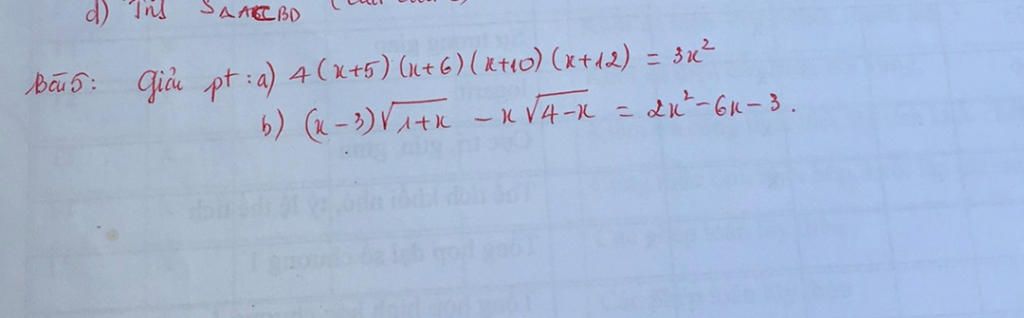 d) Tính S
Bài 5: Giải pt: a) 4(x+5)(x+6)(x+10)(x+12) = 3x²
b) (x-3)√1+x - x√4-x = 2x²-6x-3.